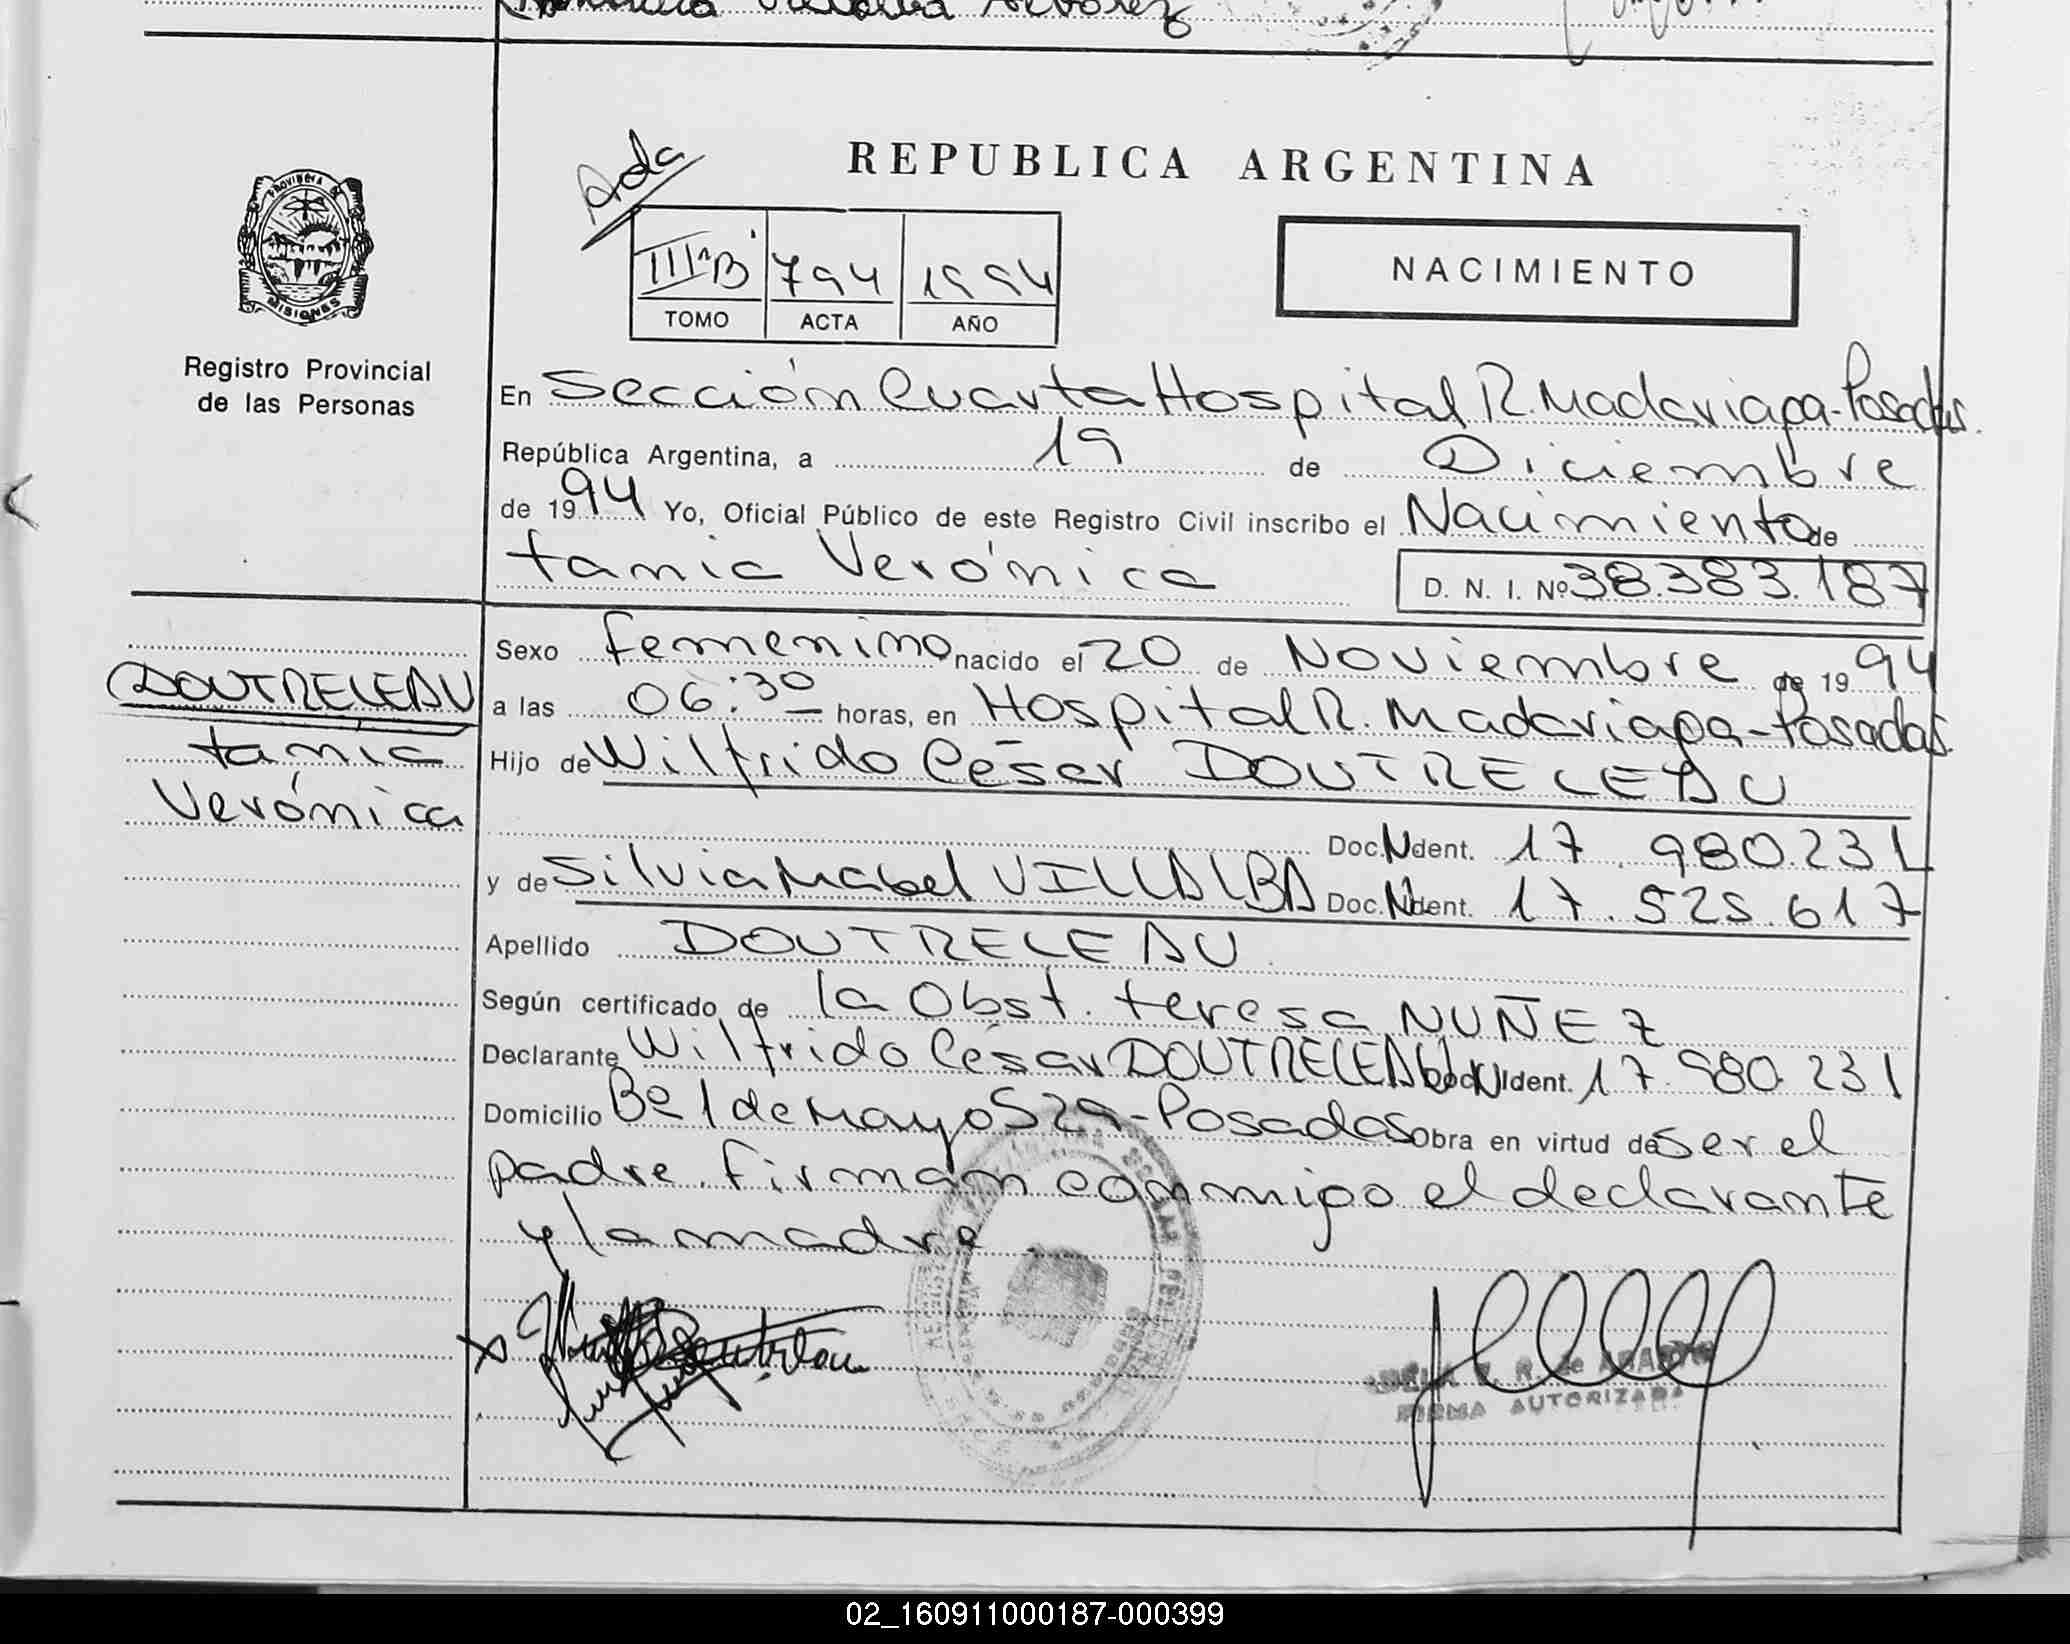 Villalba Alvarez
Ada
REPUBLICA ARGENTINA
PROVINCIA DE
MISIONES
III"B" 794 1994
TOMO ACTA AÑO
NACIMIENTO
Registro Provincial
de las Personas
En Sección Cuarta Hospital R. Madariaga-Posadas.
República Argentina, a 19 de Diciembre
de 1994 Yo, Oficial Público de este Registro Civil inscribo el Nacimiento de
tania Verónica D. N. I. Nº 38.383.187
DOUTRELEAU
tania
Verónica
Sexo femenino nacido el 20 de Noviembre de 1994
a las 06:30 horas, en Hospital R. Madariaga-Posadas.
Hijo de Wilfrido César DOUTRELEAU
Doc. N Ident. 17.980.231
y de Silvia Mabel VILLALBA Doc. N Ident. 17.525.617
Apellido DOUTRELEAU
Según certificado de la Obst. teresa NUÑEZ
Declarante Wilfrido César DOUTRELEAU Doc. N Ident. 17.980.231
Domicilio Bº 1 de Mayo 529-Posadas Obra en virtud de ser el
padre. firman conmigo el declarante
y la madre.
FIRMA AUTORIZADA
02_160911000187-000399